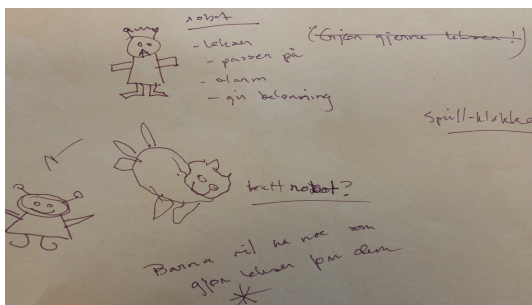 robot
- lekser
- passer på
- alarm
- gir belønning
(Gjør gjerne lekser!)
Spill-klokke
kattrobot?
Barna vil ha noe som
gjør lekser for dem